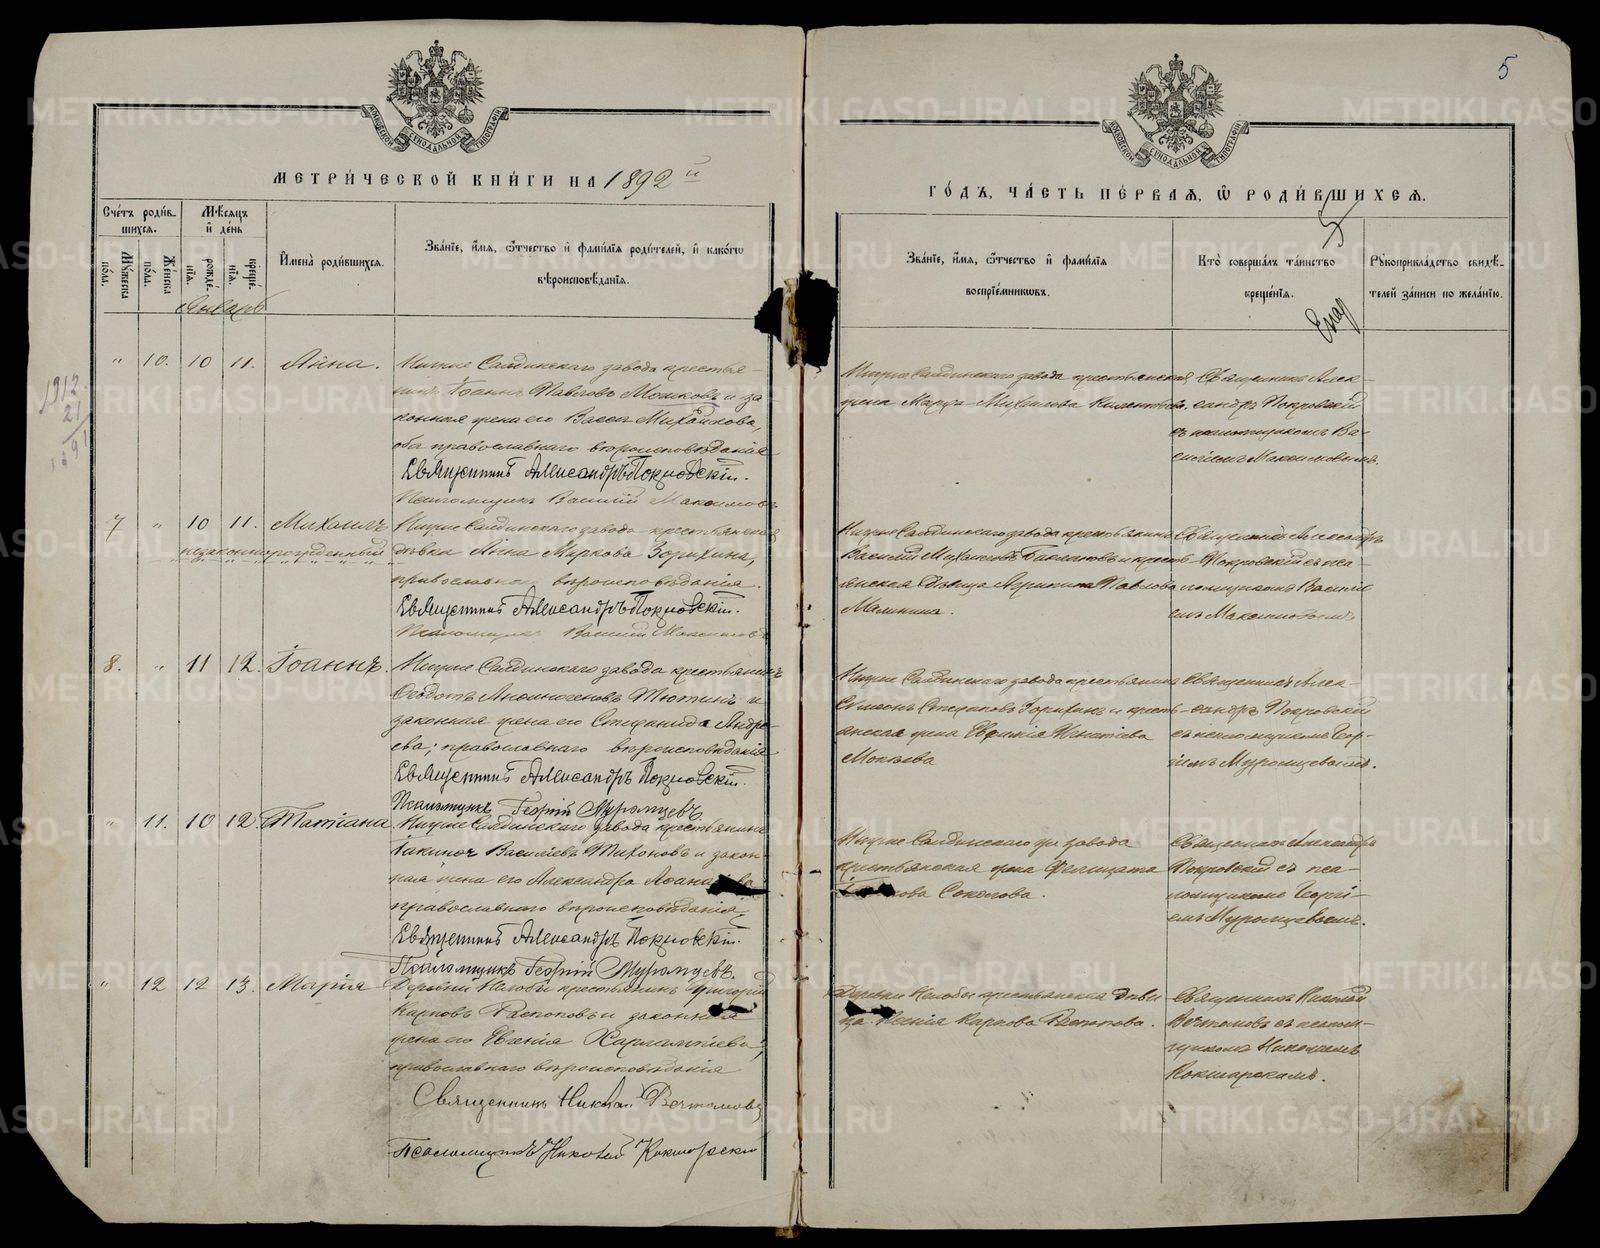 5
МЕТРИ́ЧЕСКОЙ КНИ́ГИ НА 1892 й
ГО́ДЪ, ЧА́СТЬ ПЕ́РВАѦ, Ѿ РОДИ́ВШИХСѦ.
5
Счéтъ роди́в-
шихся.
Мѣ́сяцъ
и҆ де́нь
Му́жеска по́ла.
Же́нска по́ла.
рожде́нїя.
креще́нїя.
И҆мена̀ роди́вшихся.
Зва́нїе, и҆́мя, ѻ҆́тчество и҆ фами́лїя роди́телей, и҆ како́гѡ
вѣроисповѣ́данїя.
Зва́нїе, и҆́мя, ѻ҆́тчество и҆ фами́лїя
воспрїе́мникѡвъ.
Кто̀ соверша́лъ та́инство
креще́нїя.
Рꙋкоприкла́дство свидѣ́-
телей за́писи по жела́нїю.
Январь
" 10. 10 11. Анна.
Нижне Салдинскаго завода крестья-
нинъ Іоаннъ Павловъ и за
конная жена его Васса Михайлова,
оба православнаго вѣроисповѣданія
Священникъ Александръ Покровскій.
Псаломщикъ Василій Максимовъ
Нижне Салдинскаго завода крестьянская
жена Марѳа Михайлова
Священникъ Алек-
сандръ Покровскій
съ псаломщикомъ Ва-
силіемъ Максимовымъ.
1912
21
7 " 10 11. Михаилъ
незаконнорожденный
Нижне Салдинскаго завода крестьянская
дѣвка Анна Маркова Зорихина,
православнаго вѣроисповѣданія.
Священникъ Александръ Покровскій.
Псаломщикъ Василій Максимовъ
Нижне Салдинскаго завода крестьянинъ
Василій Михайловъ и кресть-
янская дѣвица Агрипина Павлова
Малкина.
Священникъ Александръ
Покровскій съ пса-
ломщикомъ Василі
емъ Максимовымъ
8. " 11 12. Іоаннъ.
Нижне Салдинскаго завода крестьянинъ
Ѳеодотъ Анѳиногеновъ Тютинъ и
законная жена его Стефанида Андре-
ева; православнаго вѣроисповѣданія
Священникъ Александръ Покровскій.
Псаломщикъ Георгій Муромцевъ.
Нижне Салдинскаго завода крестьянинъ
Симеонъ Стефановъ Зорихинъ и кресть-
янская жена Евфимія Игнатіева
Мокѣева
Священникъ Алек-
сандръ Покровскій
съ псаломщикомъ Геор-
гіемъ Муромцевымъ.
" 11. 10 12. Татіана
Нижне Салдинскаго завода крестьянинъ
Іакинѳъ Васильевъ Тихоновъ и закон
ная жена его Александра
православнаго вѣроисповѣданія,
Священникъ Александръ Покровскій.
Псаломщикъ Георгій Муромцевъ.
Нижне Салдинскаго завода
крестьянская жена Фелицата
Соколова.
Священникъ Александръ
Покровскій съ пса-
ломщикомъ Георгі-
емъ Муромцевымъ.
" 12 12 13. Марія
Деревни крестьянинъ Григорій
Карповъ Распоповъ и законная
жена его Евгенія Харлампіева,
православнаго вѣроисповѣданія
Священникъ Николай Вечтомовъ
Псаломщикъ Николай Кокшарскій
Деревни крестьянская дѣви
ца Ксенія Карпова Распопова.
Священникъ Николай
Вечтомовъ съ псалом-
щикомъ Николаемъ
Кокшарскимъ.